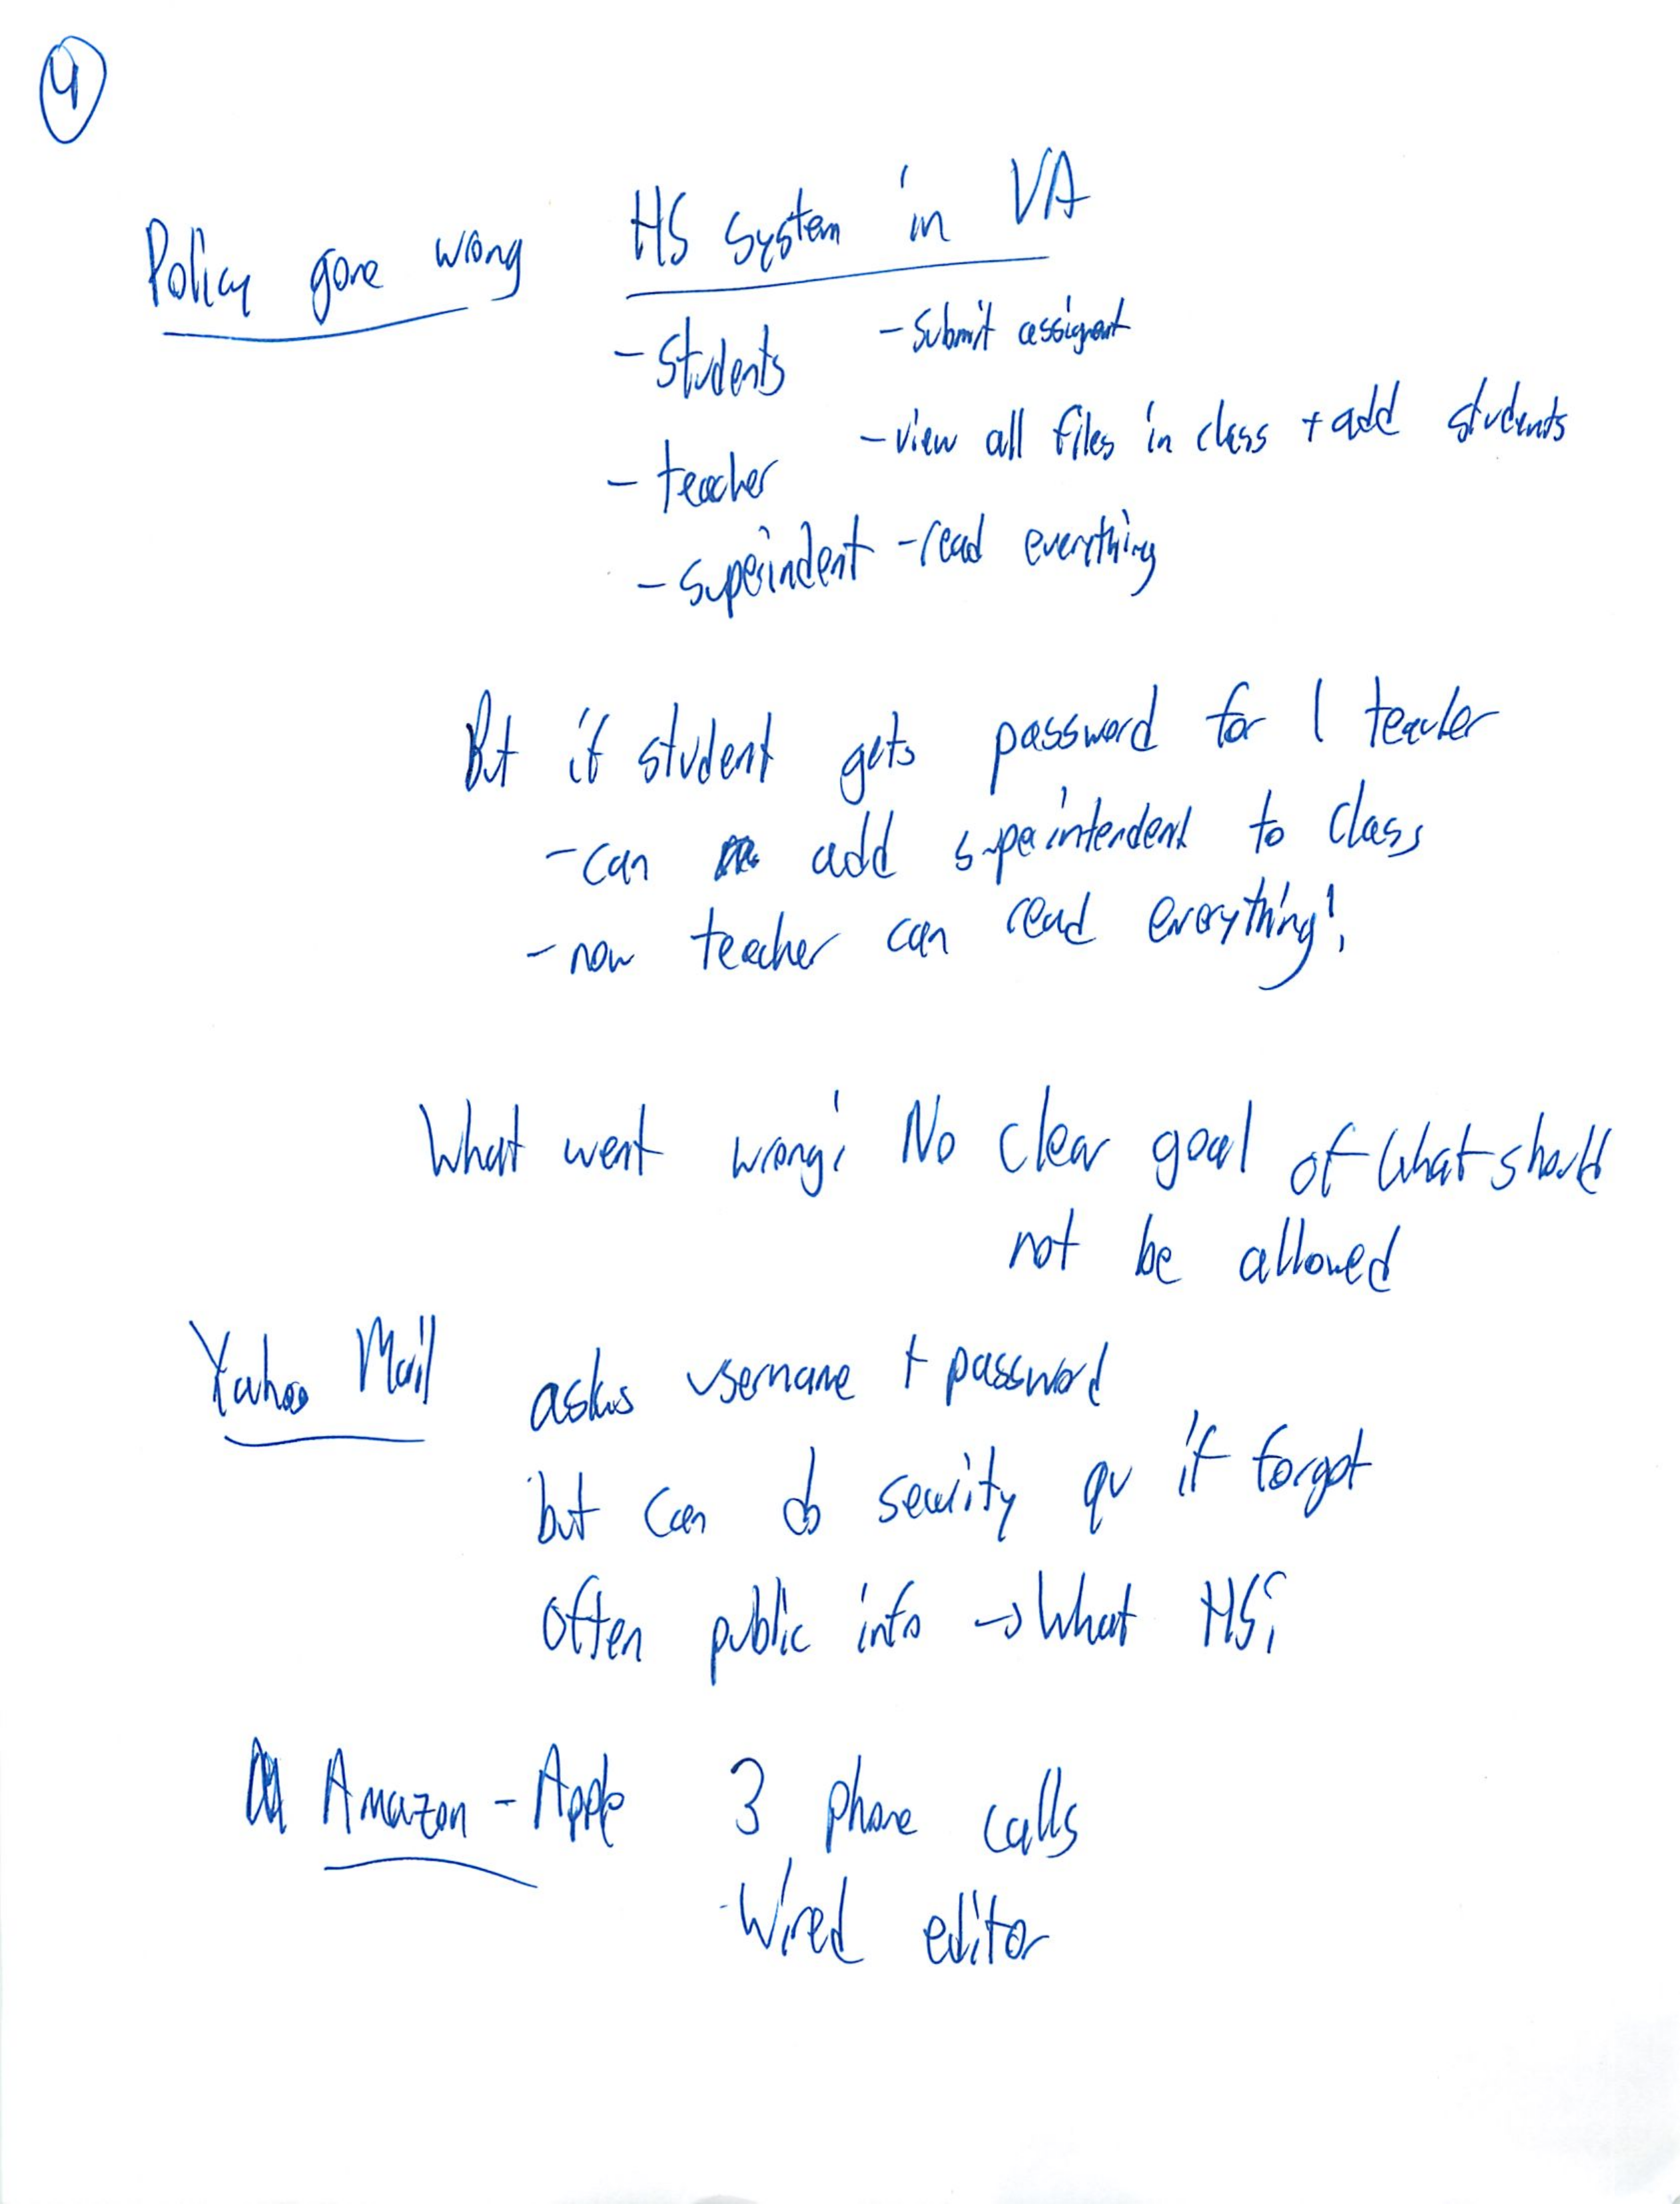 4
Policy gone wrong HS system in VA
- Students - submit assignment
- teacher - view all files in class + add students
- superindent - read everything
But if student gets password for 1 teacher
- can add superintendent to class
- now teacher can read everything!
What went wrong? No clear goal of what should
not be allowed
Yahoo Mail asks username + password
but can do security qu if forgot
often public info → What HS?
Amazon - Apple 3 phone calls
- Wired editor